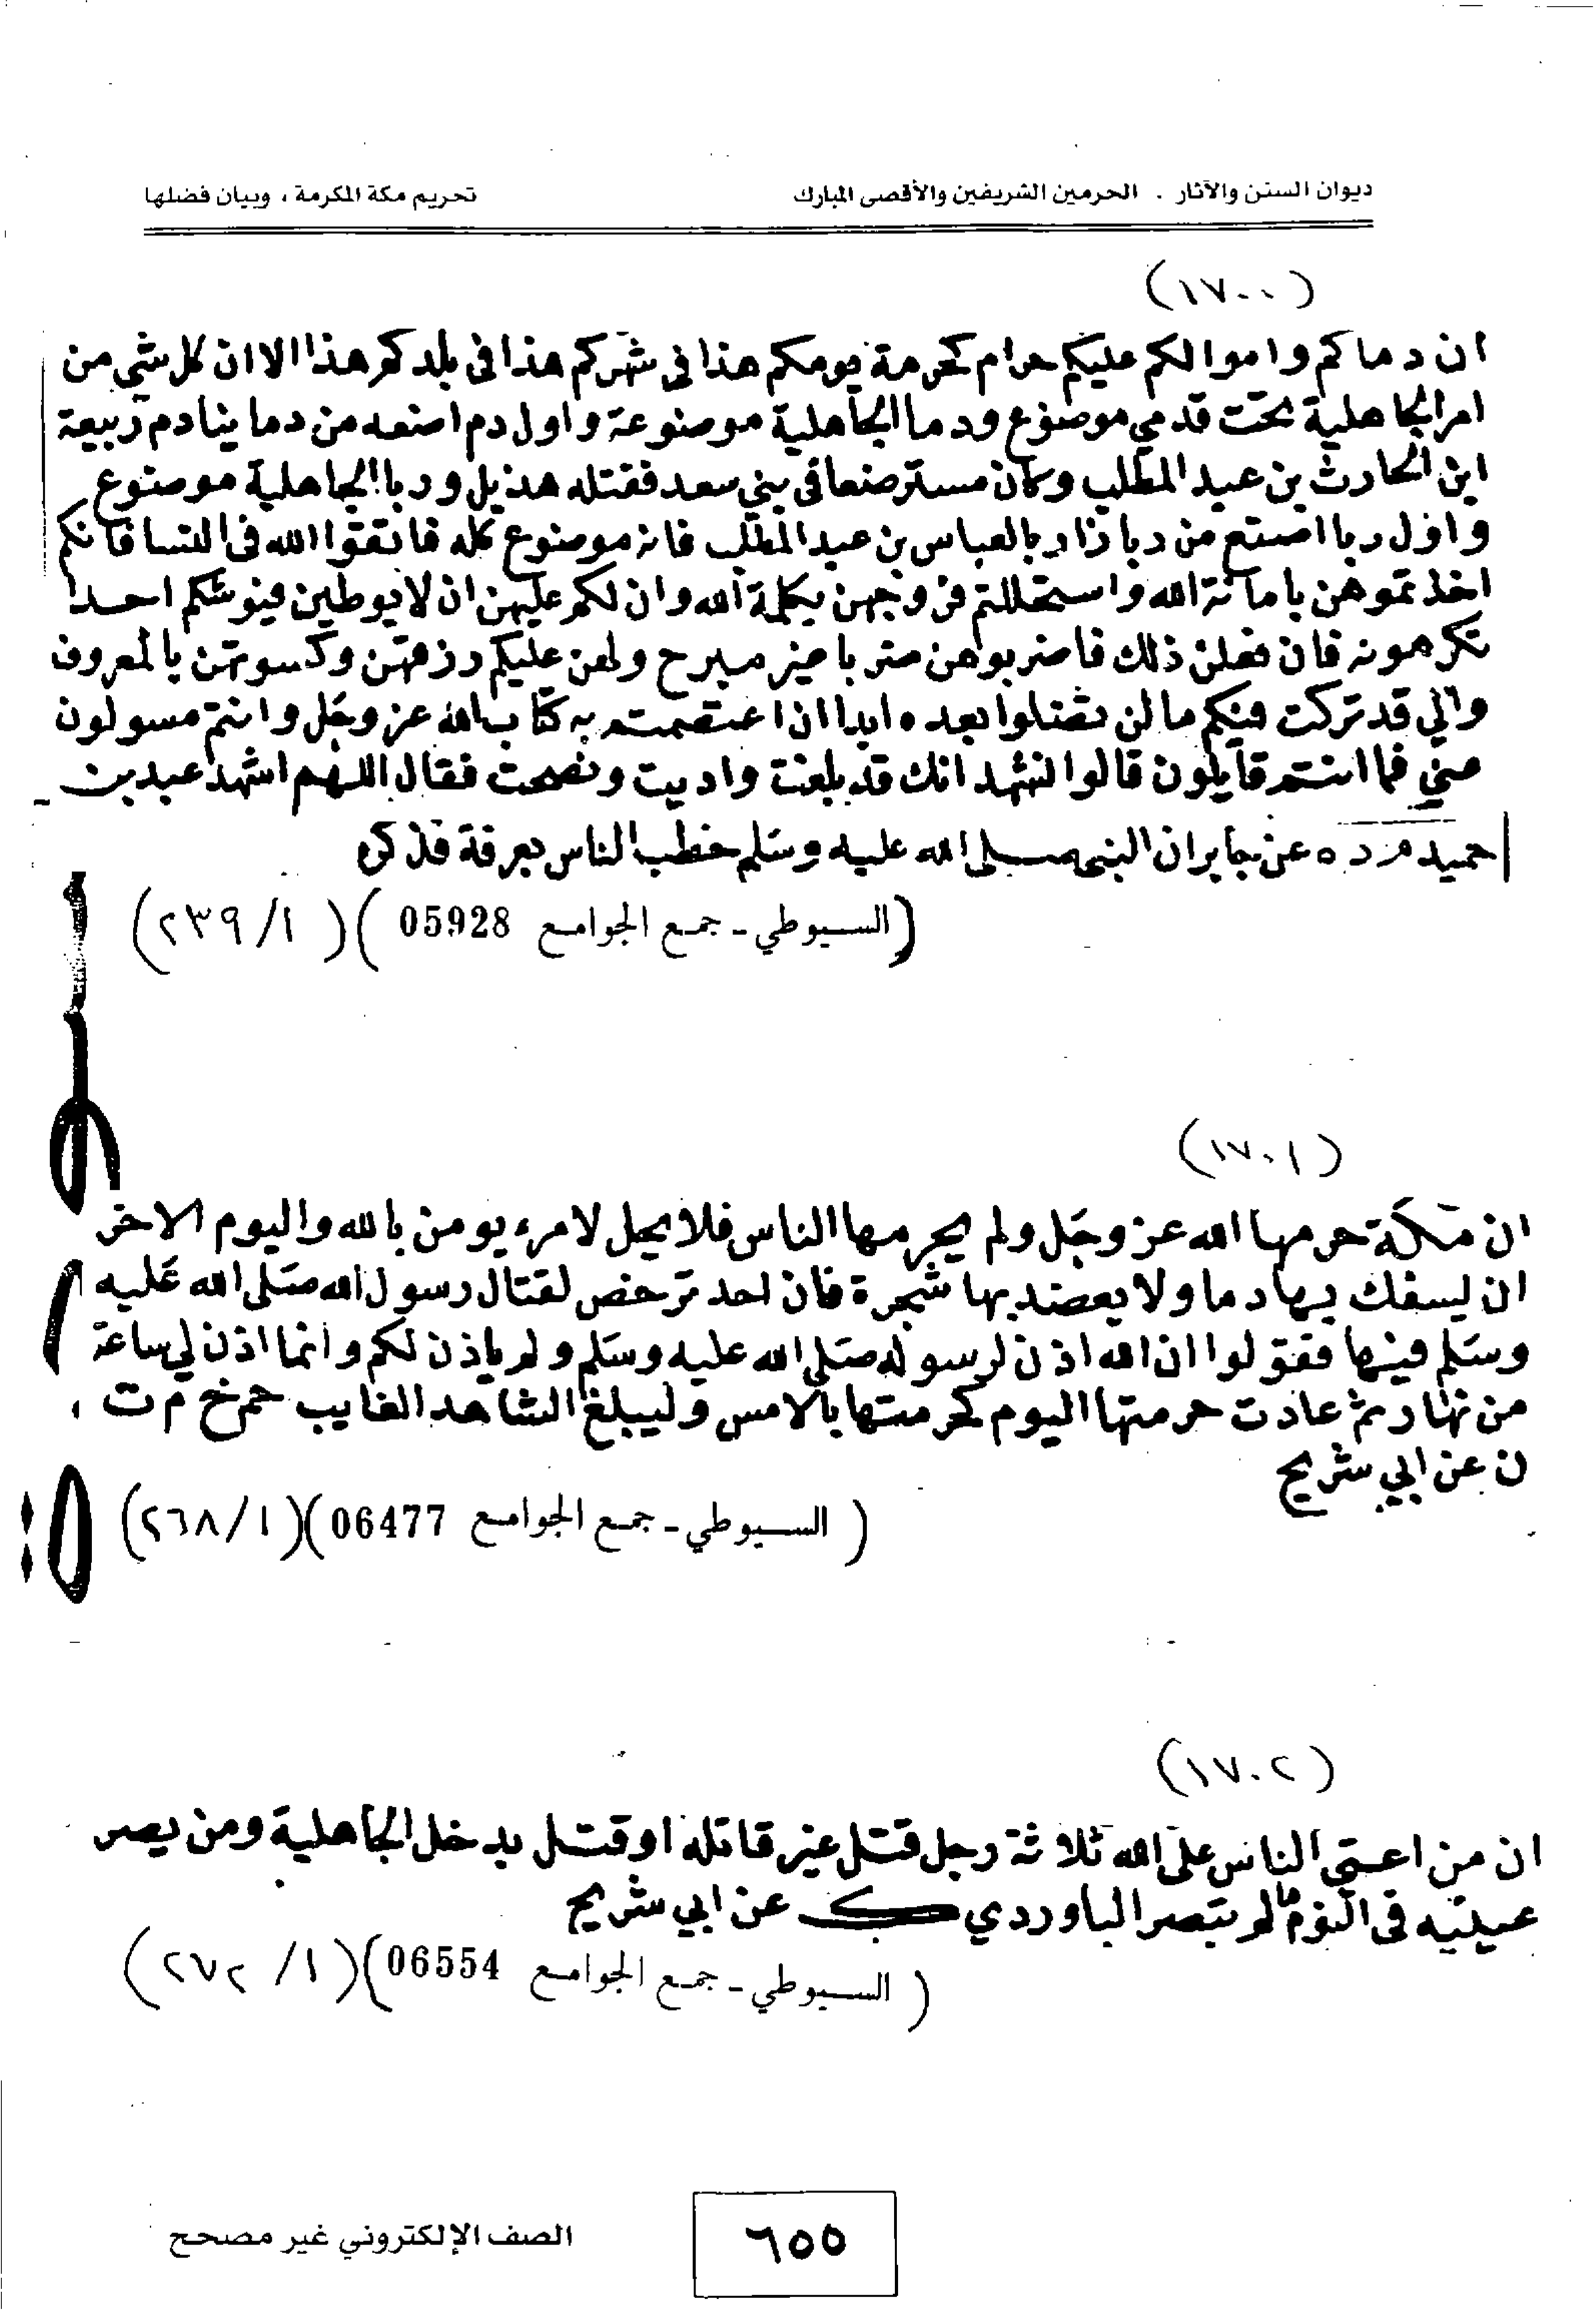 ديوان السنن والآثار . الحرمين الشريفين والأقصى المبارك
تحريم مكة المكرمة ، وبيان فضلها
(١٧٠٠)
ان دماكم واموالكم عليكم حرام كحرمة يومكم هذا فى شهركم هذا فى بلدكم هذا الا ان كل شي من
امر الجاهلية تحت قدمي موضوع ودما الجاهلية موضوعة واول دم اضعه من دماينا دم ربيعة
ابن الحارث بن عبد المطلب وكان مسترضعا فى بني سعد فقتله هذيل وربا الجاهلية موضوع
واول ربا اضع من ربانا ربا العباس بن عبد المطلب فانه موضوع كله فاتقوا الله فى النسا فانكم
اخذتموهن بامانة الله واستحللتم فروجهن بكلمة الله وان لكم عليهن ان لا يوطين فروشكم احدا
تكرهونه فان فعلن ذلك فاضربوهن ضربا غير مبرح ولهن عليكم رزقهن وكسوتهن بالمعروف
واني قد تركت فيكم ما لن تضلوا بعده ابدا ان اعتصمتم به كتاب الله عز وجل وانتم مسولون
عني فما انتم قايلون قالوا نشهد انك قد بلغت واديت ونصحت فقال اللهم اشهد عبد بن
حميد م د ه عن جابر ان النبى صلى الله عليه وسلم خطب الناس بعرفة فذكره
(السيوطي - جمع الجوامع 05928)(١/٢٣٩)
(١٧٠١)
ان مكة حرمها الله عز وجل ولم يحرمها الناس فلا يحل لامرء يومن بالله واليوم الاخر
ان يسفك بها دما ولا يعضد بها شجرة فان احد ترخص لقتال رسول الله صلى الله عليه
وسلم فيها فقولوا ان الله اذن لرسوله صلى الله عليه وسلم ولم ياذن لكم وانما اذن لي ساعة
من نهار ثم عادت حرمتها اليوم كحرمتها بالامس وليبلغ الشاهد الغايب حم خ م ت
ن عن ابي شريح
(السيوطي - جمع الجوامع 06477)(١/٢٦٨)
(١٧٠٢)
ان من اعتى الناس على الله ثلاثة رجل قتل غير قاتله او قتل بدخل الجاهلية ومن يصر
عينيه فى النوم ما لم تبصر الباوردي ك عن ابي شريح
(السيوطي - جمع الجوامع 06554)(١/٢٧٢)
٦٥٥
الصف الإلكتروني غير مصحح